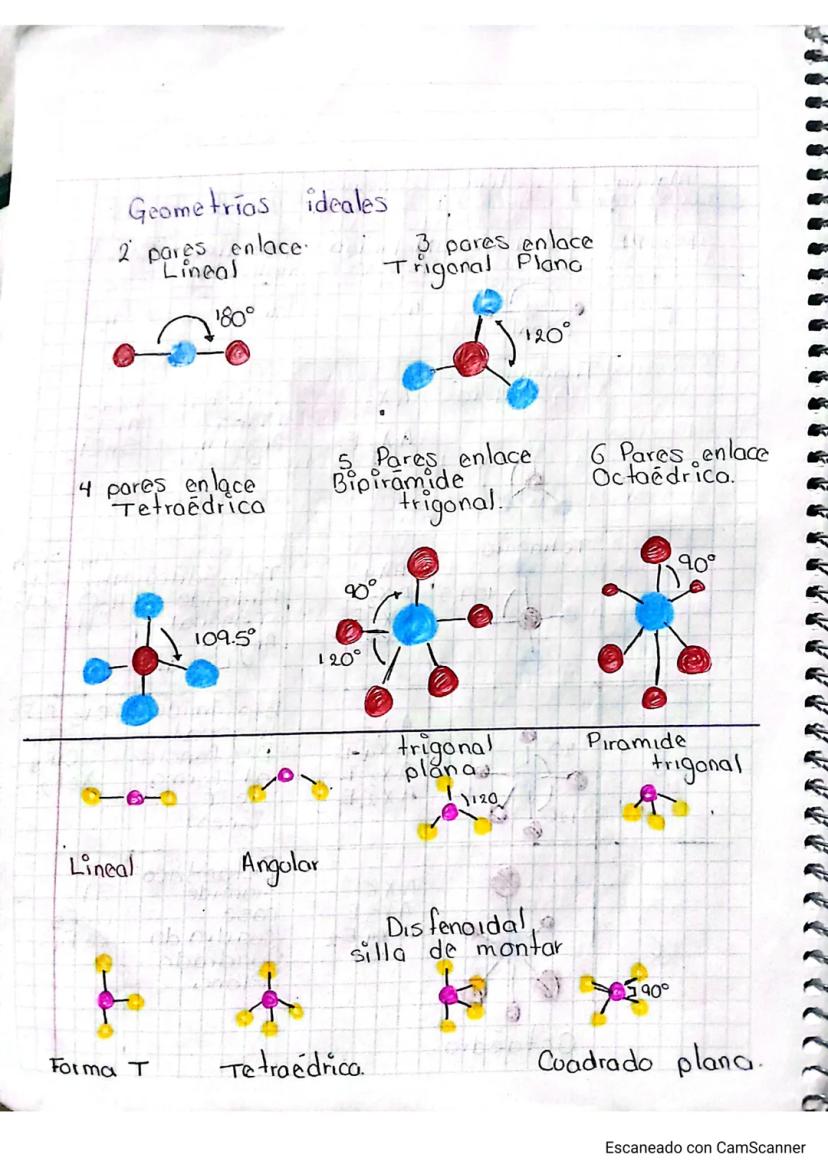 Geometrías ideales
2 pares enlace
Lineal
3 pares enlace
Trigonal Plana
180°
120°
4 pares enlace
Tetraédrica
5 Pares enlace
Bipirámide
trigonal.
6 Pares enlace
Octaédrica.
109.5°
90°
120°
90°
Lineal
Angular
trigonal
plana
120
Piramide
trigonal
Forma T
Tetraédrica.
Disfenoidal
silla de montar
90°
Cuadrado plana.
Escaneado con CamScanner